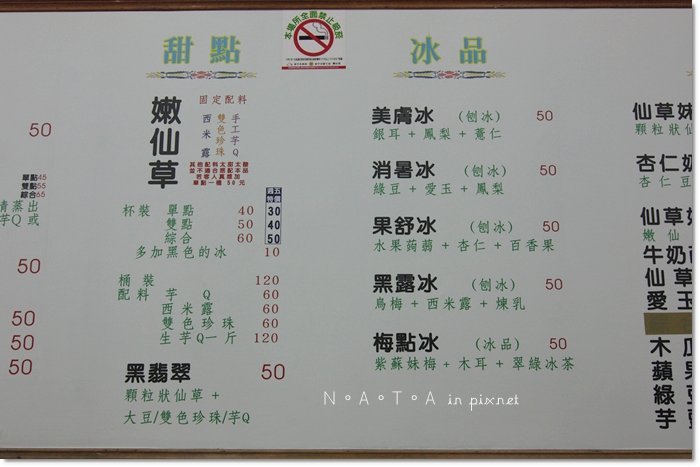 50
單點45
雙點55
綜合65
青蒸出
芋Q 或
50
50
50
50
甜點
嫩仙草
固定配料
西米露
雙色珍珠
手工芋Q
其他配料太甜太酸
並不適合搭配本品
若客人真想加
單點一種 50 元
週五
特價
杯裝 單點 40 30
雙點 50 40
綜合 60 50
多加黑色的冰 10
桶裝 120
配料 芋 Q 60
西米露 60
雙色珍珠 60
生芋Q一斤 120
黑翡翠 50
顆粒狀仙草 +
大豆/雙色珍珠/芋Q
本場所全面禁止吸菸
冰品
美膚冰 (刨冰) 50
銀耳 + 鳳梨 + 薏仁
消暑冰 (刨冰) 50
綠豆 + 愛玉 + 鳳梨
果舒冰 (刨冰) 50
水果蒟蒻 + 杏仁 + 百香果
黑露冰 (刨冰) 50
烏梅 + 西米露 + 煉乳
梅點冰 (冰品) 50
紫蘇妹梅 + 木耳 + 翠綠冰茶
仙草妹
顆粒狀仙
杏仁奶
杏仁豆
仙草妹
嫩仙
牛奶
仙草
愛玉
木瓜
蘋
綠豆
芋
N。A。T。A in pixnet